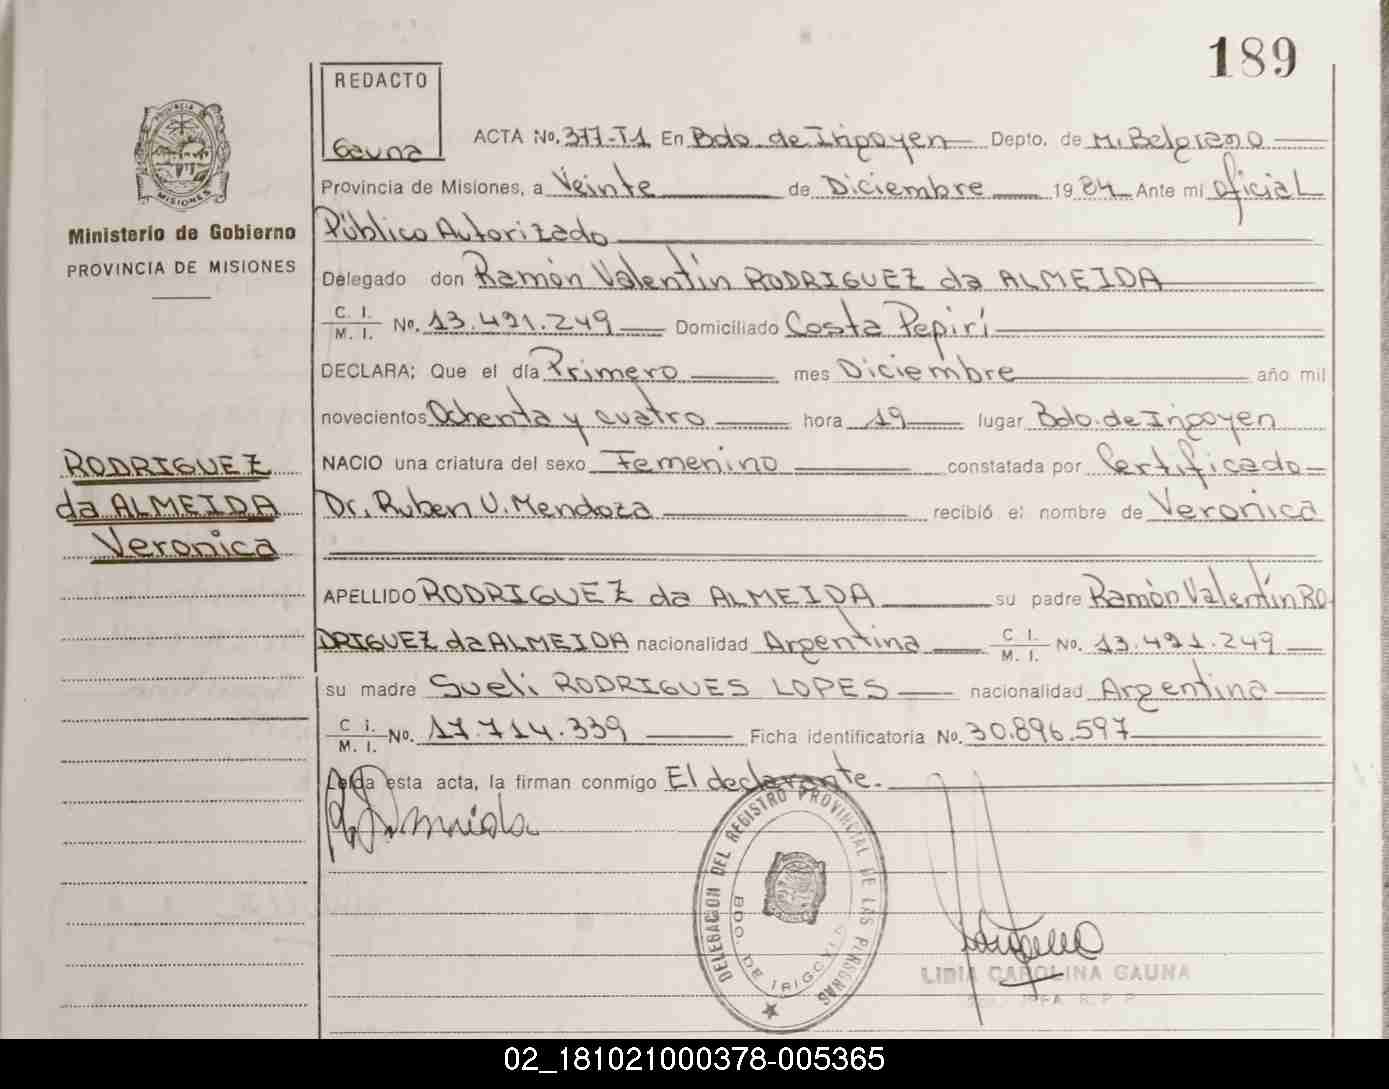 189
REDACTO
Gauna
PROVINCIA
MISIONES
Ministerio de Gobierno
PROVINCIA DE MISIONES
ACTA No. 377-T1 En Bdo. de Irigoyen Depto. de M. Belgrano
Provincia de Misiones, a Veinte de Diciembre 1984 Ante mi Oficial
Público Autorizado
Delegado don Ramón Valentín RODRIGUEZ da ALMEIDA
C. I. M. I. No. 13.491.249 Domiciliado Costa Pepirí
DECLARA; Que el día Primero mes Diciembre año mil
novecientos Ochenta y cuatro hora 19 lugar Bdo. de Irigoyen
NACIO una criatura del sexo Femenino constatada por Certificado
Dr. Ruben U. Mendoza recibió el nombre de Veronica
RODRIGUEZ
da ALMEIDA
Veronica
APELLIDO RODRIGUEZ da ALMEIDA su padre Ramón Valentín RO
DRIGUEZ da ALMEIDA nacionalidad Argentina C. I. M. I. No. 13.491.249
su madre Sueli RODRIGUES LOPES nacionalidad Argentina
C. I. M. I. No. 17.714.339 Ficha identificatoria No. 30.896.597
Leída esta acta, la firman conmigo El declarante.
DELEGACION DEL REGISTRO PROVINCIAL DE LAS PERSONAS
BDO. DE IRIGOYEN
LIDIA CAROLINA GAUNA
02_181021000378-005365